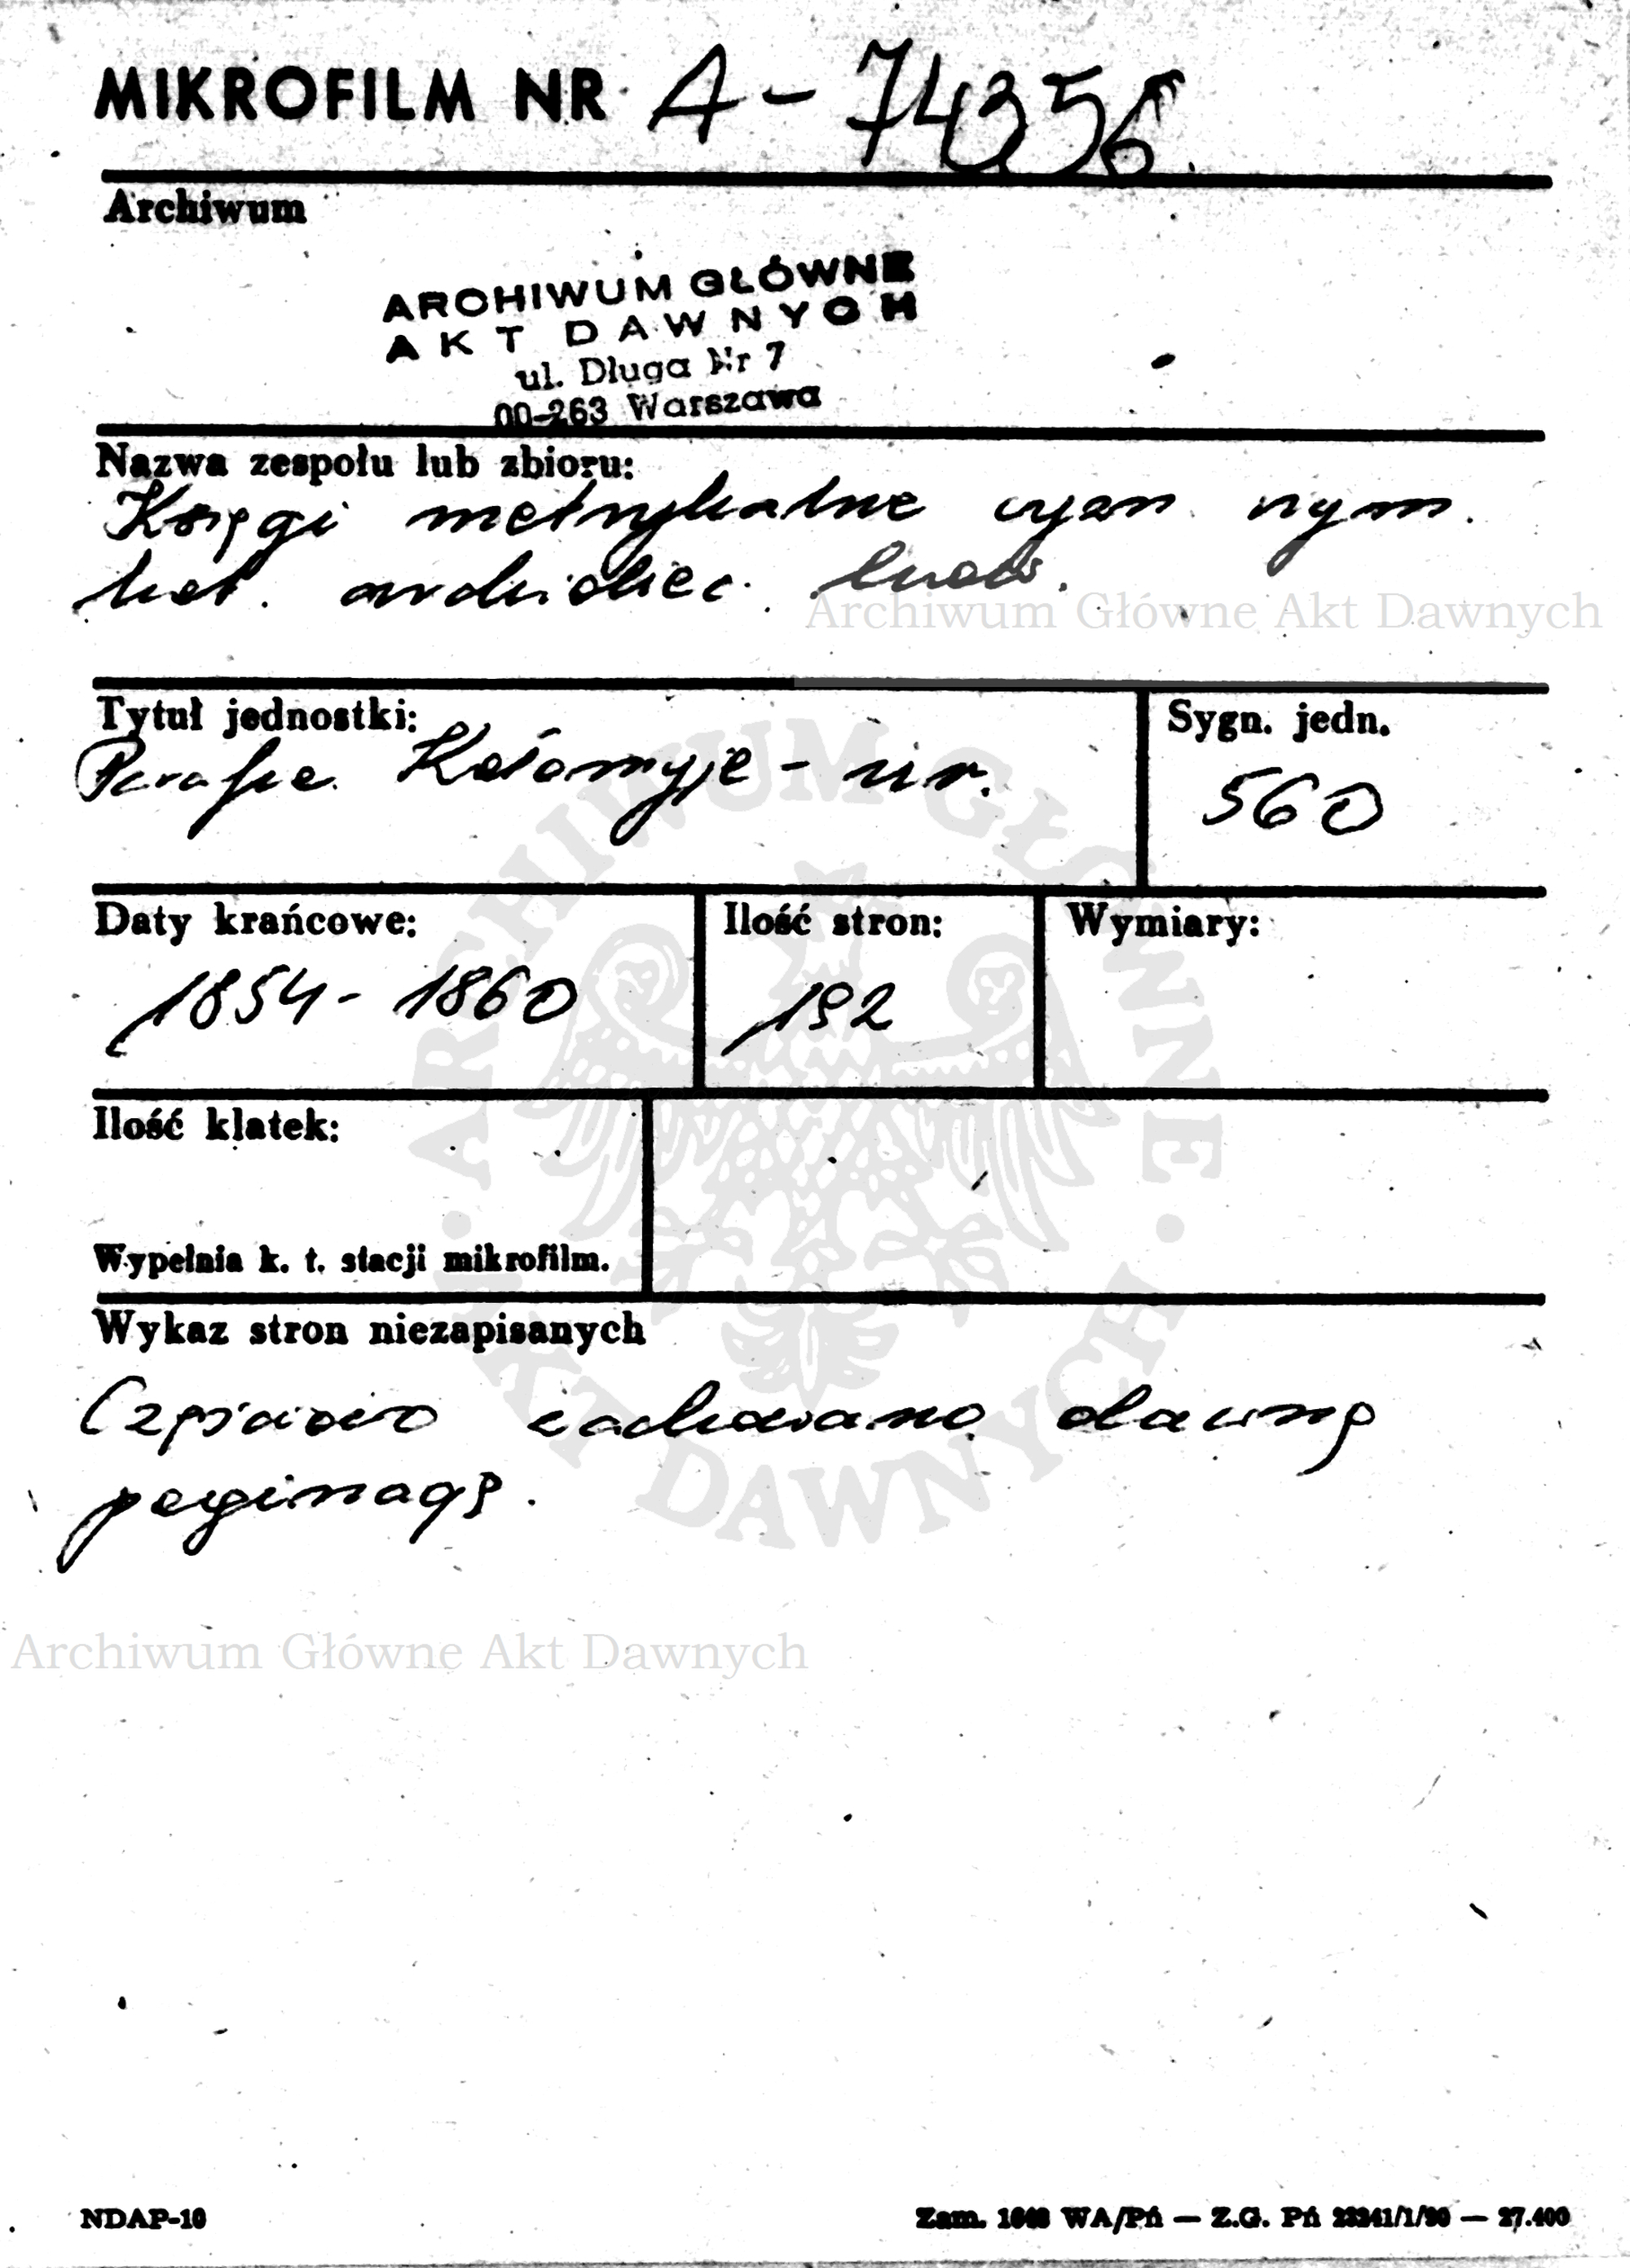 MIKROFILM NR A-74356
Archiwum
ARCHIWUM GŁÓWNE
AKT DAWNYCH
ul. Długa Nr 7
00-263 Warszawa
Nazwa zespołu lub zbioru:
Księgi metrykalne wyzn. rzym.
kat. archidiiec. lwow.
Archiwum Główne Akt Dawnych
Tytuł jednostki:
Parafia Kołomyja - ur.
Sygn. jedn.
560
Daty krańcowe:
1854-1860
Ilość stron:
192
Wymiary:
Ilość klatek:
Wypełnia k. t. stacji mikrofilm.
Wykaz stron niezapisanych
Częściowo zachowano dawną
paginację.
ARCHIWUM GŁÓWNE AKT DAWNYCH
Archiwum Główne Akt Dawnych
NDAP-10
Zam. WA/Pń — Z.G. Pń — 27.400